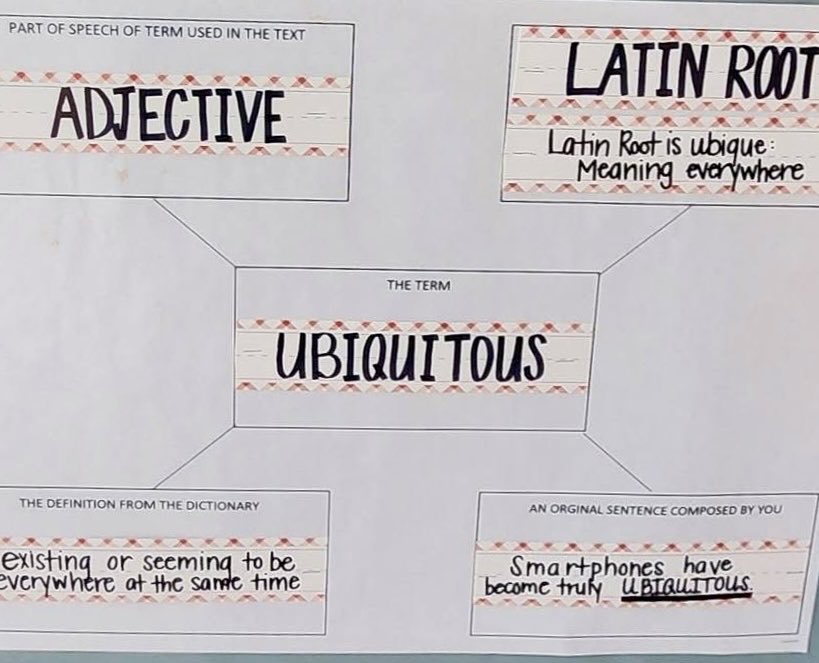 PART OF SPEECH OF TERM USED IN THE TEXT
ADJECTIVE
LATIN ROOT
Latin Root is ubique:
Meaning everywhere
THE TERM
UBIQUITOUS
THE DEFINITION FROM THE DICTIONARY
existing or seeming to be
everywhere at the same time
AN ORGINAL SENTENCE COMPOSED BY YOU
Smartphones have
become truly UBIQUITOUS.